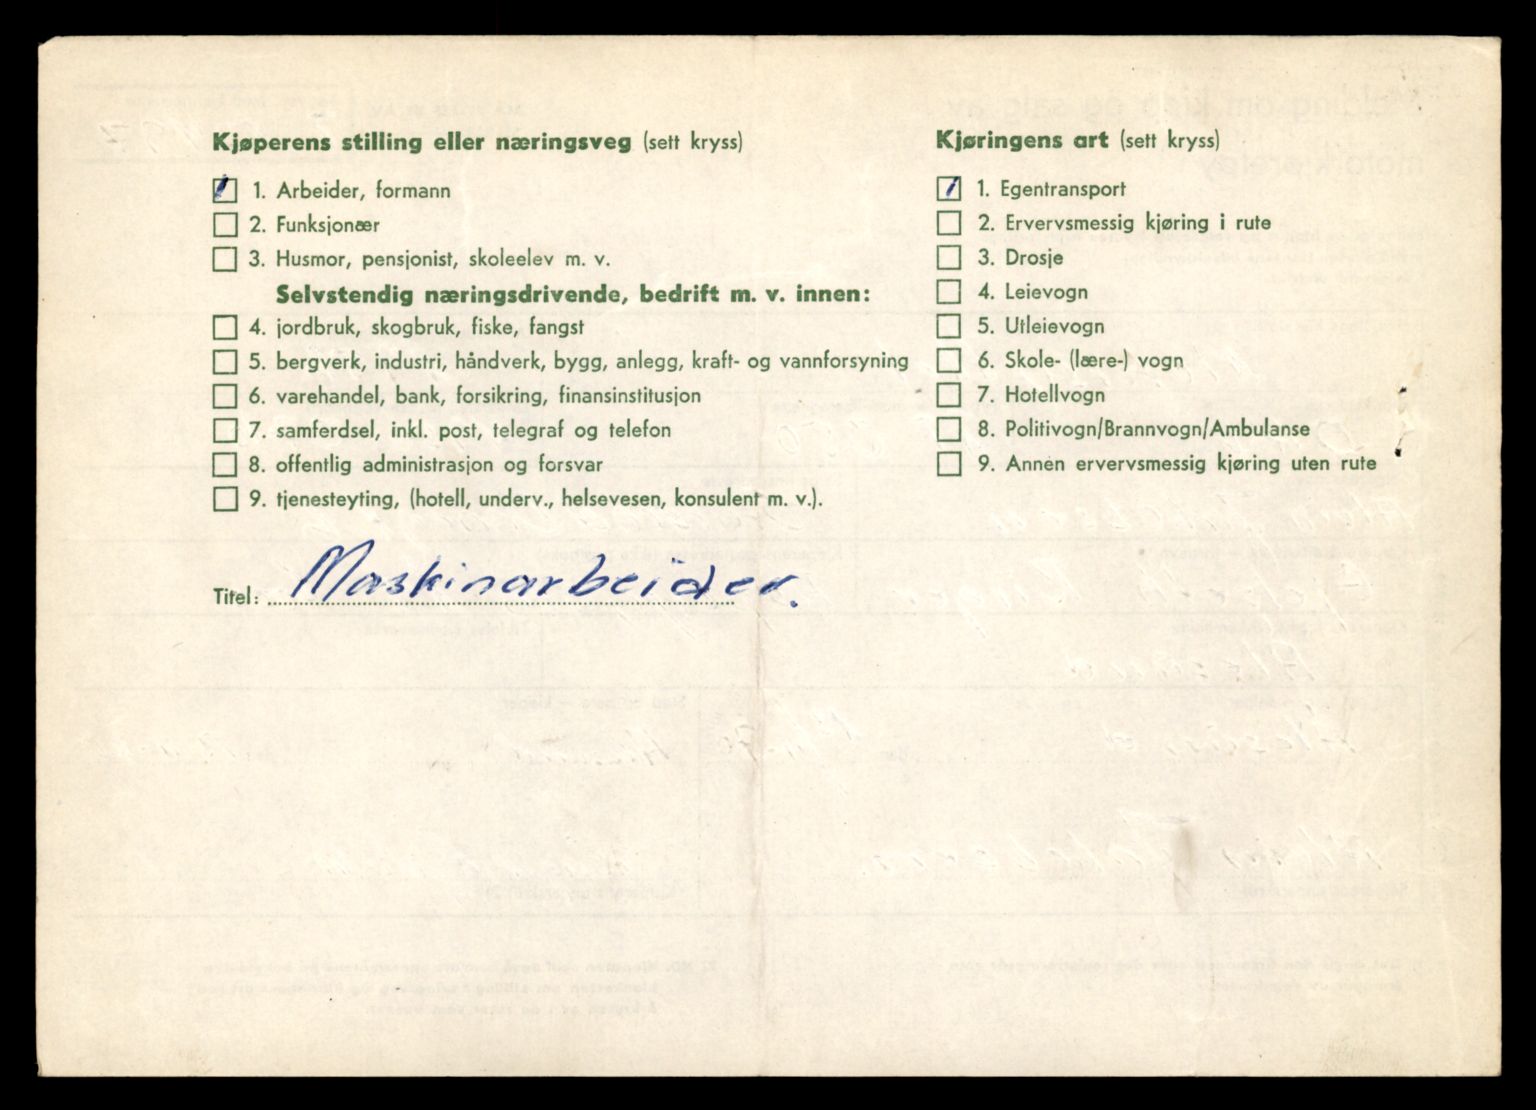 Kjøperens stilling eller næringsveg (sett kryss)
1. Arbeider, formann
2. Funksjonær
3. Husmor, pensjonist, skoleelev m. v.
Selvstendig næringsdrivende, bedrift m. v. innen:
4. jordbruk, skogbruk, fiske, fangst
5. bergverk, industri, håndverk, bygg, anlegg, kraft- og vannforsyning
6. varehandel, bank, forsikring, finansinstitusjon
7. samferdsel, inkl. post, telegraf og telefon
8. offentlig administrasjon og forsvar
9. tjenesteyting, (hotell, underv., helsevesen, konsulent m. v.).
Titel: Maskinarbeider.
Kjøringens art (sett kryss)
1. Egentransport
2. Ervervsmessig kjøring i rute
3. Drosje
4. Leievogn
5. Utleievogn
6. Skole- (lære-) vogn
7. Hotellvogn
8. Politivogn/Brannvogn/Ambulanse
9. Annen ervervsmessig kjøring uten rute